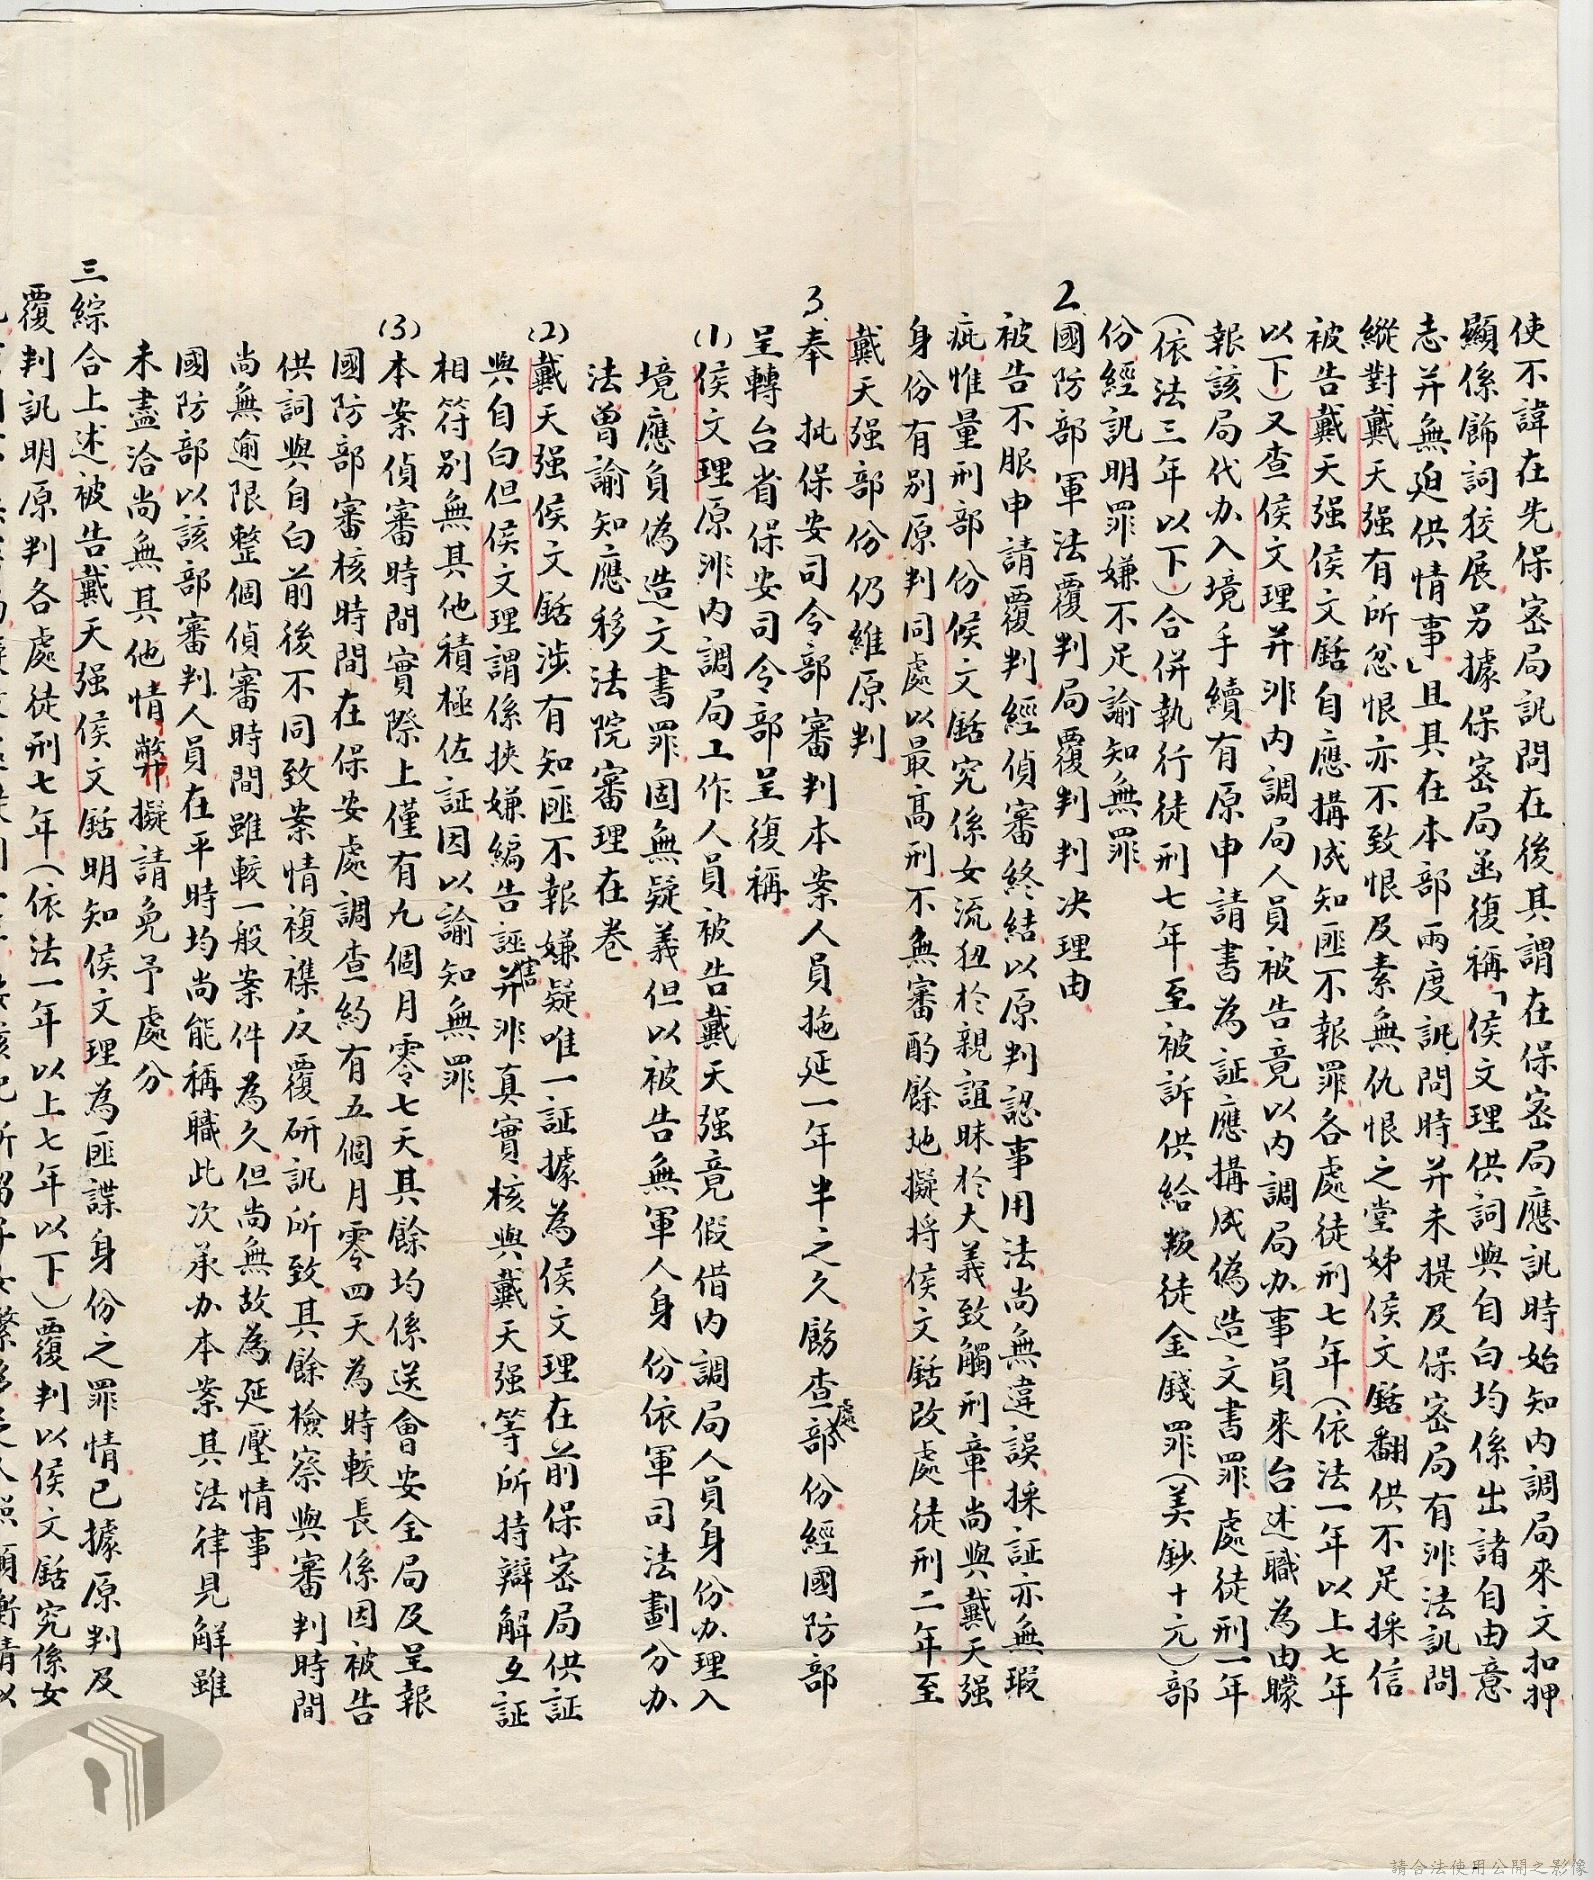 使不諱在先保密局訊問在後其謂在保密局應訊時始知內調局來文扣押
顯係飾詞狡展另據保密局函復稱「侯文理供詞與自白均係出諸自由意
志并無迫供情事」且其在本部兩度訊問時并未提及保密局有非法訊問
縱對戴天强有所忿恨亦不致恨及素無仇恨之堂姊侯文䤚翻供不足採信
被告戴天强侯文䤚自應構成知匪不報罪各處徒刑七年(依法一年以上七年
以下)又查侯文理并非內調局人員被告竟以內調局办事員來台述職為由矇
報該局代办入境手續有原申請書為証應構成偽造文書罪處徒刑一年
(依法三年以下)合併執行徒刑七年至被訴供給叛徒金錢罪(美鈔十元)部
份經訊明罪嫌不足諭知無罪
2.國防部軍法覆判局覆判判决理由
被告不服申請覆判經偵審終結以原判認事用法尚無違誤採証亦無瑕
疵惟量刑部份侯文䤚究係女流狃於親誼昧於大義致觸刑章尚與戴天强
身份有別原判同處以最高刑不無審酌餘地擬将侯文䤚改處徒刑二年至
戴天强部份仍維原判
3.奉 批保安司令部審判本案人員拖延一年半之久飭查處部份經國防部
呈轉台省保安司令部呈復稱
(1)侯文理原非內調局工作人員被告戴天强竟假借內調局人員身份办理入
境應負偽造文書罪固無疑義但以被告無軍人身份依軍司法劃分办
法曾諭知應移法院審理在卷
(2)戴天强侯文䤚涉有知匪不報嫌疑唯一証據為侯文理在前保密局供証
與自白但侯文理謂係挾嫌編告誣害并非真實核與戴天强等所持辯解互証
相符別無其他積極佐証因以諭知無罪
(3)本案偵審時間實際上僅有九個月零七天其餘均係送會安全局及呈報
國防部審核時間在保安處調查約有五個月零四天為時較長係因被告
供詞與自白前後不同致案情複襍反覆研訊所致其餘檢察與審判時間
尚無逾限整個偵審時間雖較一般案件為久但尚無故為延壓情事
國防部以該部審判人員在平時均尚能稱職此次承办本案其法律見解雖
未盡洽尚無其他情弊擬請免予處分
三綜合上述被告戴天强侯文䤚明知侯文理為匪諜身份之罪情已據原判及
覆判訊明原判各處徒刑七年(依法一年以上七年以下)覆判以侯文䤚究係女